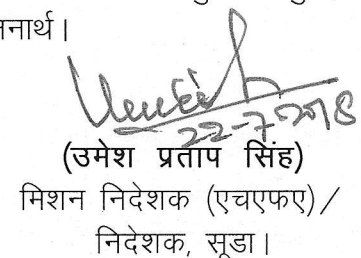 नार्थ।
22-7-2018
(उमेश प्रताप सिंह)
मिशन निदेशक (एचएफए)/
निदेशक, सूडा।